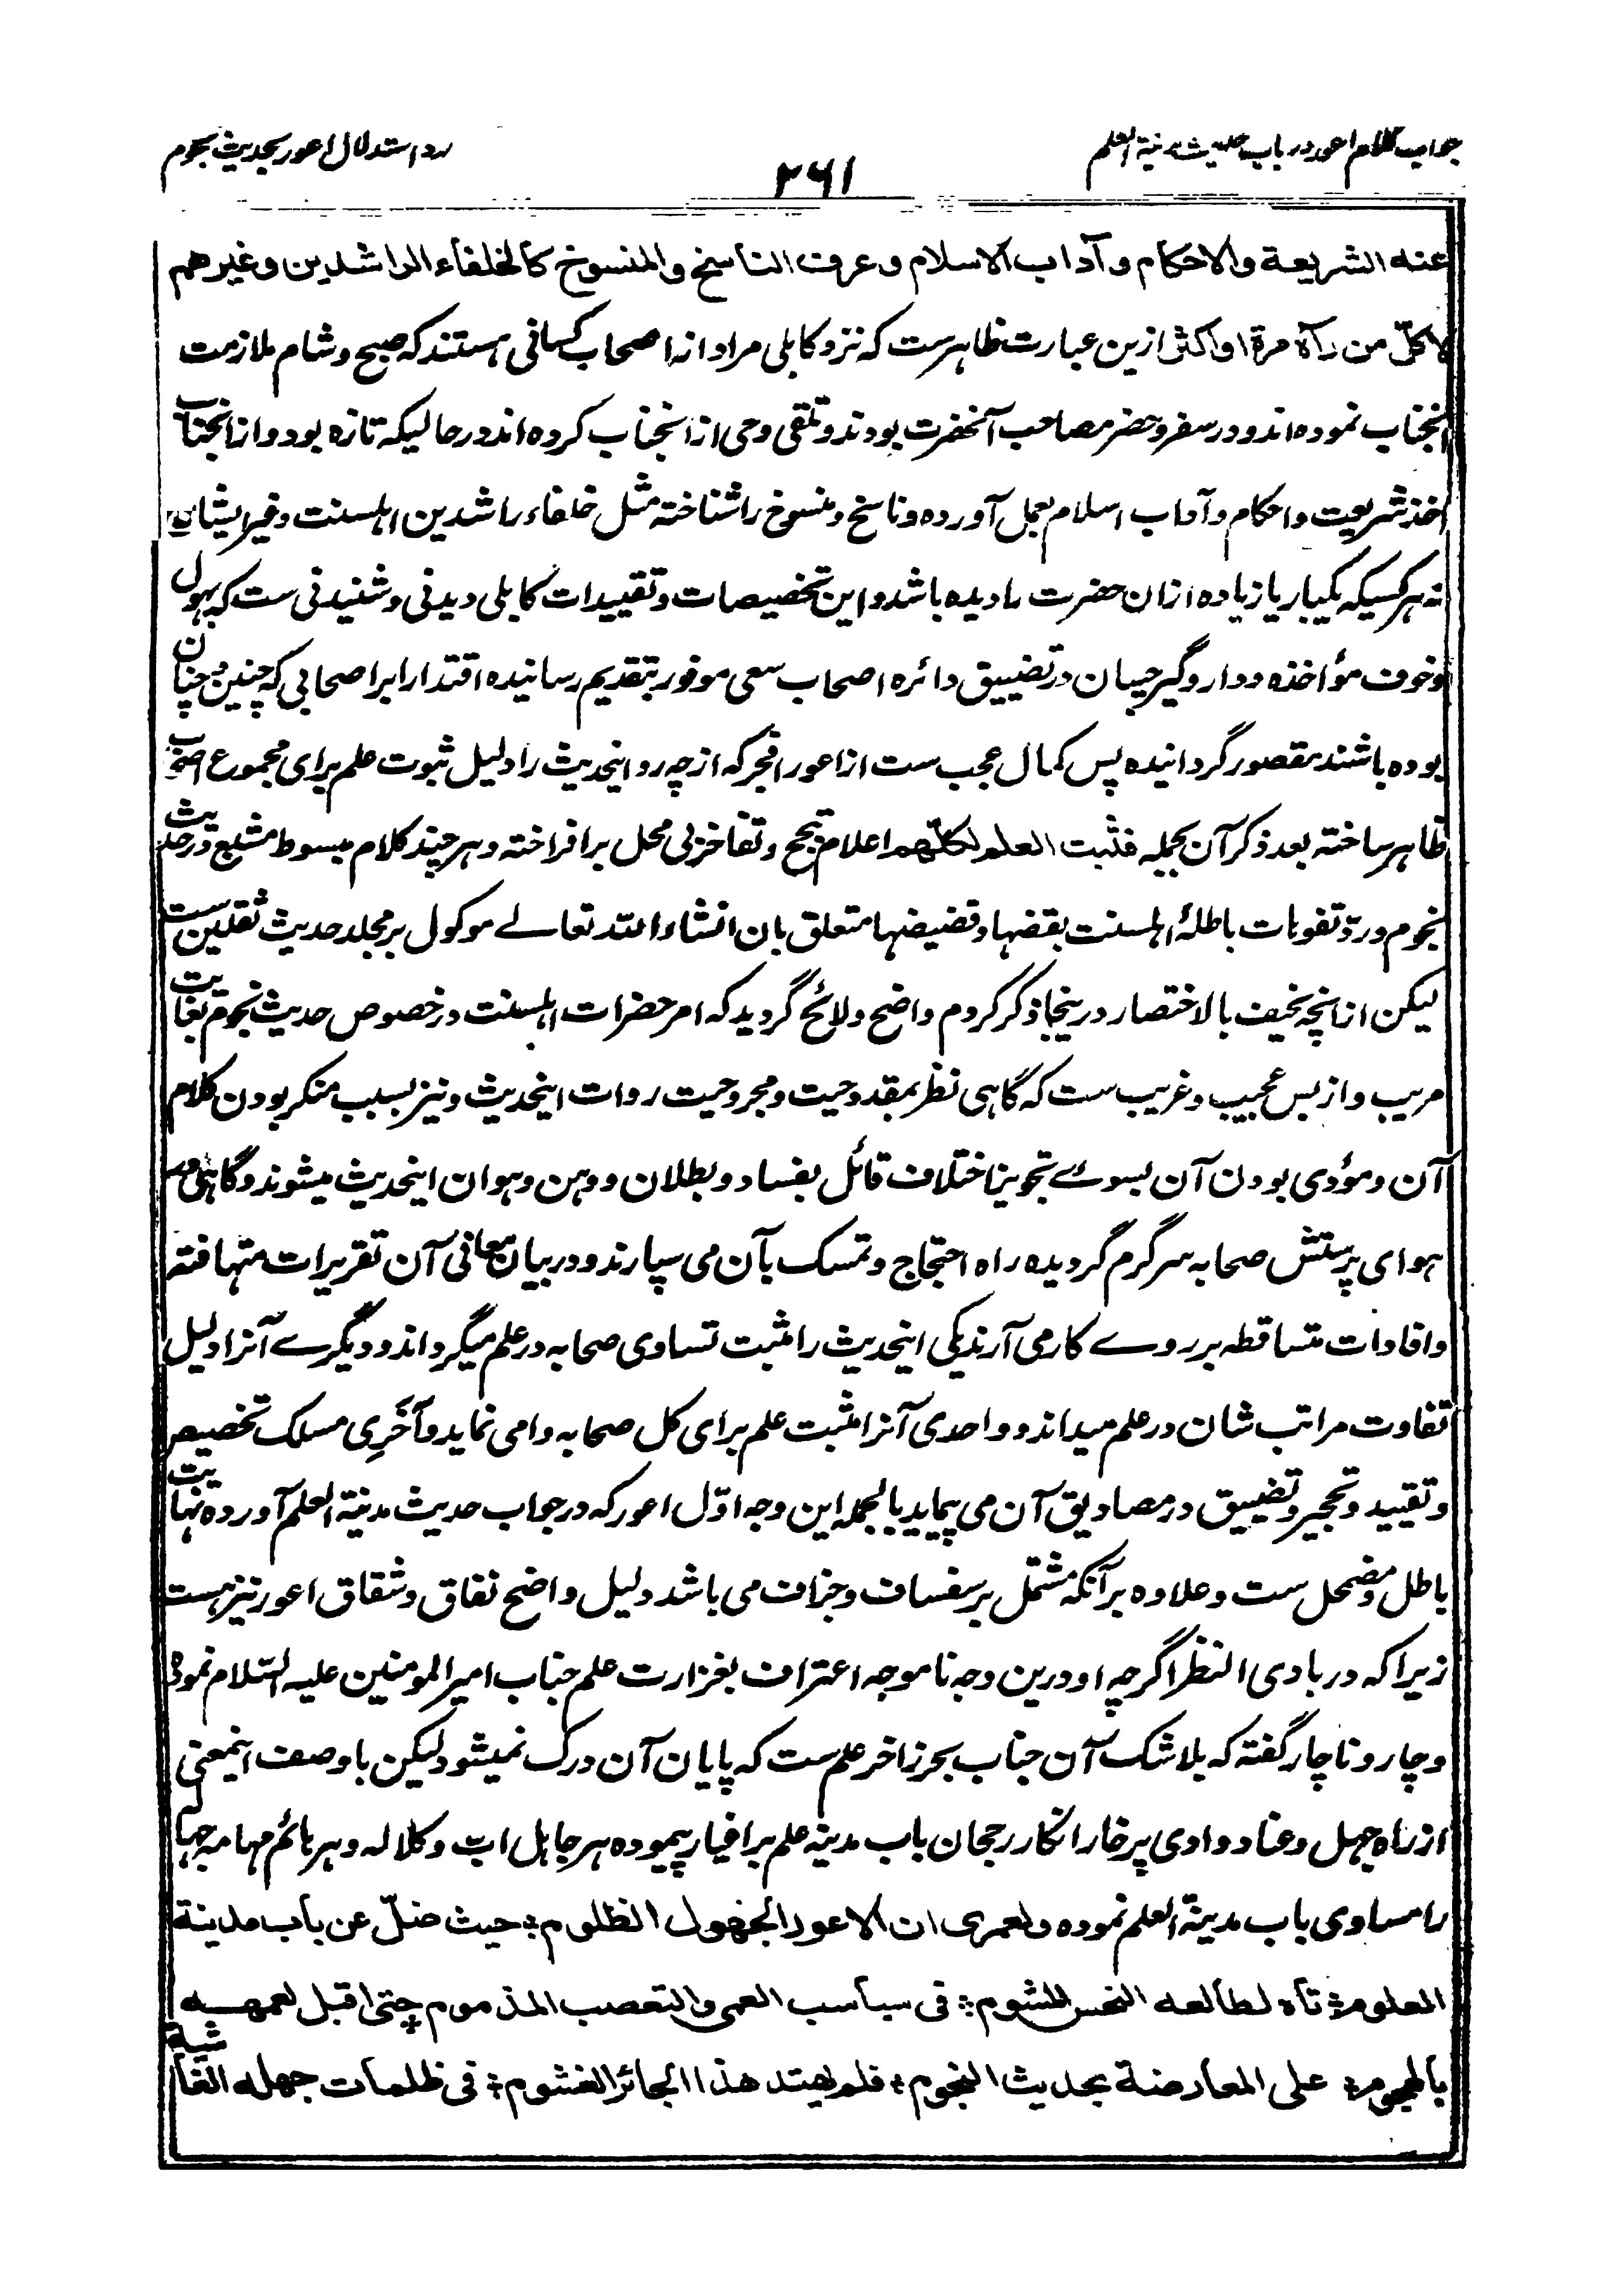 جواب کلام اعور در باب حدیث مدینة العلم
۲۶۱
رد استدلال اعور بحدیث نجوم
عنه الشریعة والاحکام وآداب الاسلام وعرف الناسخ والمنسوخ کالخلفاء الراشدین وغیرهم
لا کلّ من رآه مرة او اکثر ازین عبارت ظاهرست که نزد کابلی مراد از اصحاب کسانی هستند که صبح و شام ملازمت
آنجناب نموده اند و در سفر و حضر مصاحب آنحضرت بودند و تلقی وحی از آنجناب کرده اند در حالیکه تازه بود و از آنجناب
اخذ شریعت و احکام و آداب اسلام بعمل آورده و ناسخ و منسوخ را شناخته مثل خلفاء راشدین اهلسنت و غیر ایشان
نه هر کسیکه یکبار یا زیاده ازان حضرت را دیده باشد و این تخصیصات و تقییدات کابلی دیدنی و شنیدنی ست که بهول
و خوف مؤاخذه و دار و گیر جیبان در تضییق دائره اصحاب سعی موفور بتقدیم رسانیده اقتدا را بر اصحابی که چنین و چنان
بوده باشند مقصور گردانیده پس کمال عجب ست از اعور افجر که از چه رو اینحدیث را دلیل ثبوت علم برای مجموع اصحاب
ظاهر ساخته بعد ذکر آن بجمله فثبت العلم لکلّهم اعلام تبجح و تفاخر بی محل بر افراخته و هر چند کلام مبسوط مشبع در حدیث
نجوم و ردّ تفوهات باطلهٔ اهلسنت بقضها و قضیضها متعلق بان انشاء الله تعالے موکول بر مجلد حدیث ثقلین ست
لیکن از آنچه نحیف بالاختصار درینجا ذکر کردم واضح و لائح گردید که امر حضرات اهلسنت در خصوص حدیث نجوم بغایت
مریب و از بس عجیب و غریب ست که گاهی نظر بمقدوحیت و مجروحیت روات اینحدیث و نیز بسبب منکر بودن کلام
آن و مؤدی بودن آن بسوے تجویز اختلاف قائل بفساد و بطلان و وهن و هوان اینحدیث میشوند و گاهی در
هوای پرستش صحابه سرگرم گردیده راه احتجاج و تمسک بآن می سپارند و در بیان معانی آن تقریرات متهافته
و افادات متساقطه بر روے کار می آرند یکی اینحدیث را مثبت تساوی صحابه در علم میگرداند و دیگرے آنرا دلیل
تفاوت مراتب شان در علم میداند و واحدی آنرا مثبت علم برای کل صحابه وامی نماید و آخَرِی مسلک تخصیص
و تقیید و تحجیر و تضییق در مصادیق آن می پیماید بالجمله این وجه اوّل اعور که در جواب حدیث مدینة العلم آورده نهایت
باطل و مضمحل ست و علاوه بر آنکه مشتمل بر سفساف و جزاف می باشد دلیل واضح نفاق و شقاق اعور نیز هست
زیرا که در بادی النظر اگرچه او درین وجه ناموجه اعتراف بغزارت علم جناب امیر المومنین علیه السّلام نموده
و چار و ناچار گفته که بلا شک آن جناب بحر زاخر علم ست که پایان آن درک نمیشود لیکن با وصف اینمعنی
از راه جهل و عناد وادی پر خار انکار رجحان باب مدینه علم بر اغیار پیموده هر جاهل ابّ و کلاله و هر هائم مهامه جهاله
را مساوی باب مدینة العلم نموده ولعمری ان الاعور الجهول الظلوم؛ حیث ضلّ عن باب مدینة
العلوم؛ تاه لطالعه النحس المشوم؛ فی سباسب العمی والتعصب المذموم؛ حتی اقبل لعمهه
بالهجوم؛ علی المعارضة بحدیث النجوم؛ فلم یهتد هذا الجائر الغشوم؛ فی ظلمات جهله الغاشیة